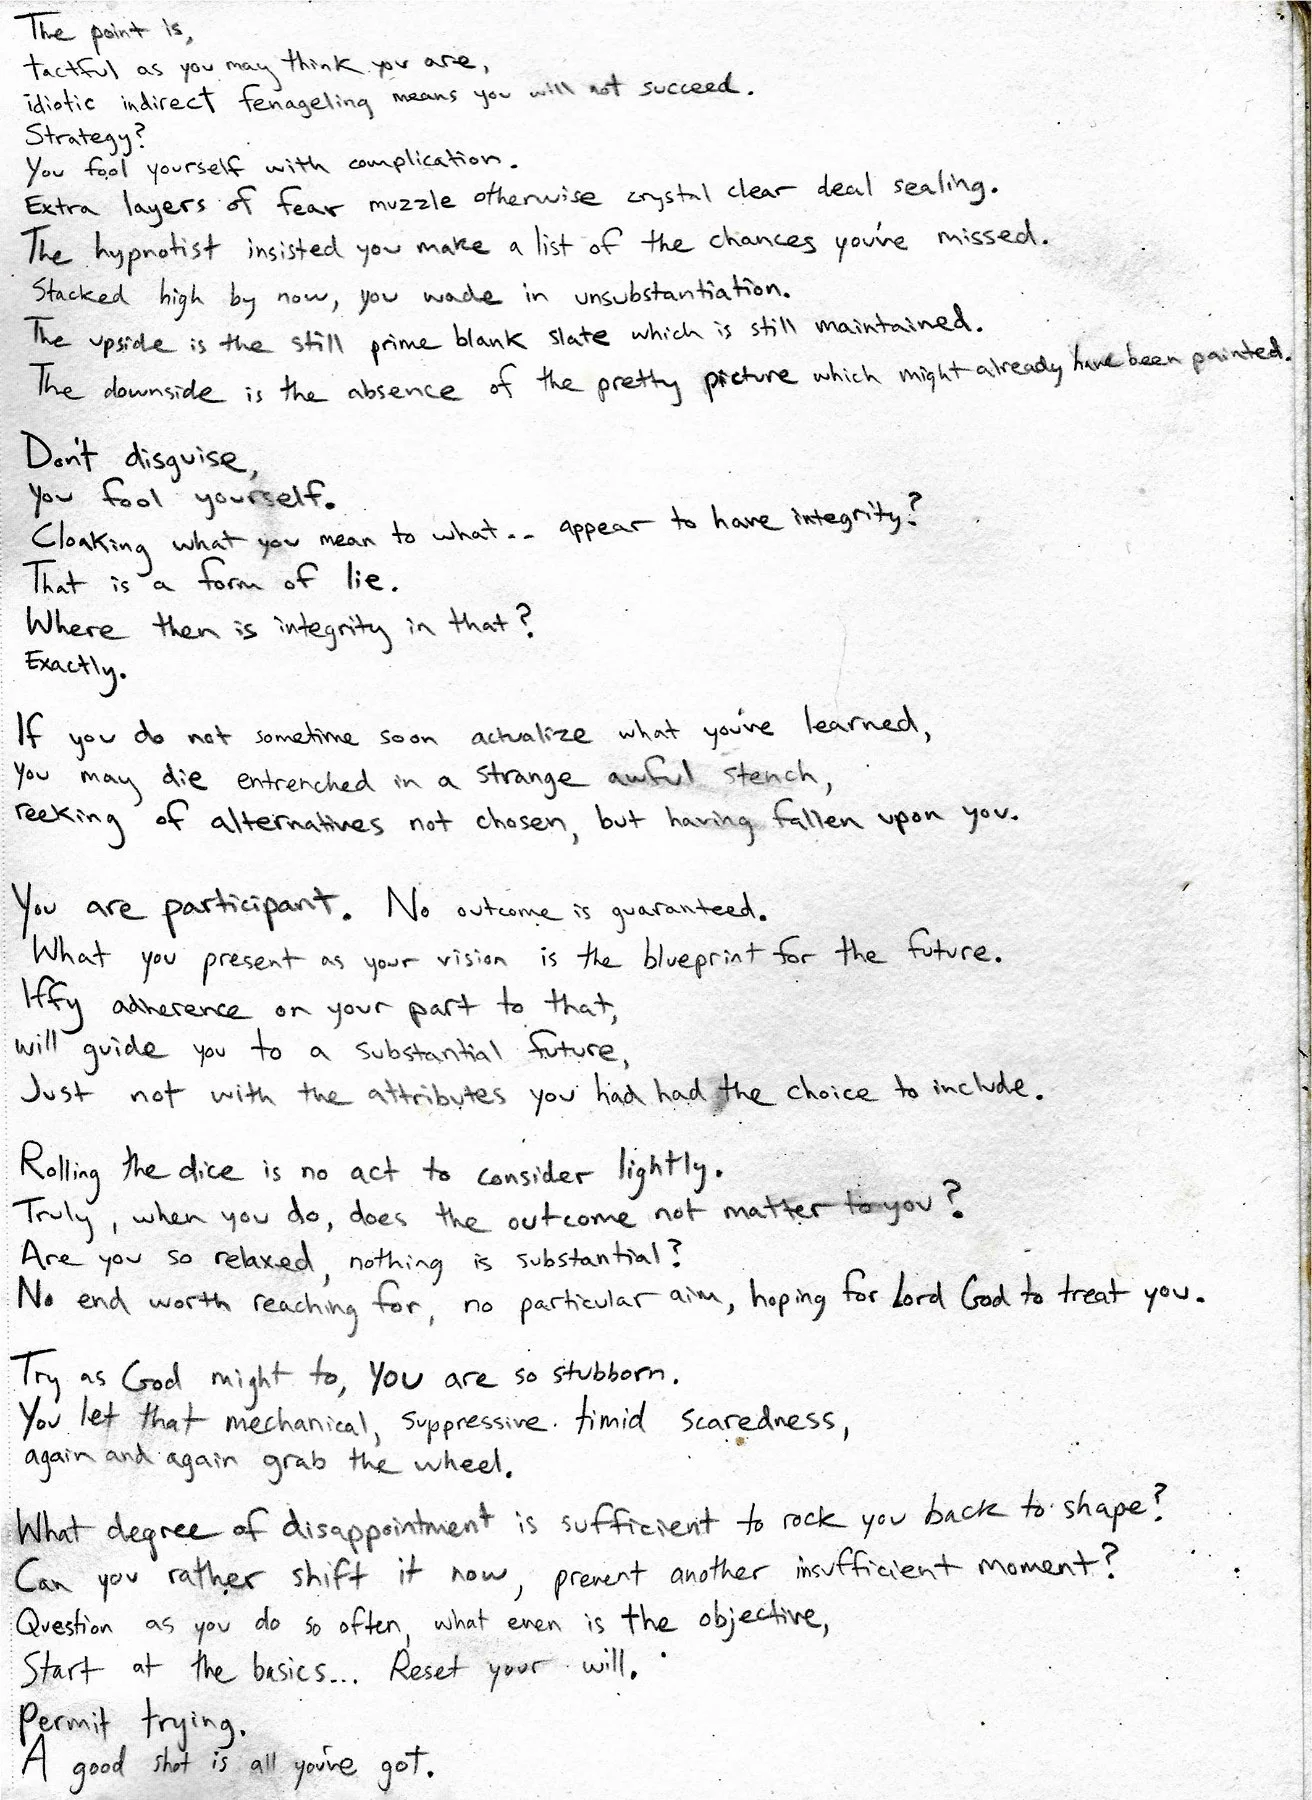 The point is,
tactful as you may think you are,
idiotic indirect fenageling means you will not succeed.
Strategy?
You fool yourself with complication.
Extra layers of fear muzzle otherwise crystal clear deal sealing.
The hypnotist insisted you make a list of the chances you've missed.
Stacked high by now, you wade in unsubstantiation.
The upside is the still prime blank slate which is still maintained.
The downside is the absence of the pretty picture which might already have been painted.
Don't disguise,
You fool yourself.
Cloaking what you mean to what.. appear to have integrity?
That is a form of lie.
Where then is integrity in that?
Exactly.
If you do not sometime soon actualize what you've learned,
You may die entrenched in a strange awful stench,
reeking of alternatives not chosen, but having fallen upon you.
You are participant. No outcome is guaranteed.
What you present as your vision is the blueprint for the future.
Iffy adherence on your part to that,
will guide you to a substantial future,
Just not with the attributes you had had the choice to include.
Rolling the dice is no act to consider lightly.
Truly, when you do, does the outcome not matter to you?
Are you so relaxed, nothing is substantial?
No end worth reaching for, no particular aim, hoping for Lord God to treat you.
Try as God might to, you are so stubborn.
You let that mechanical, suppressive timid scaredness,
again and again grab the wheel.
What degree of disappointment is sufficient to rock you back to shape?
Can you rather shift it now, prevent another insufficient moment?
Question as you do so often, what even is the objective,
Start at the basics... Reset your will.
Permit trying.
A good shot is all you've got.